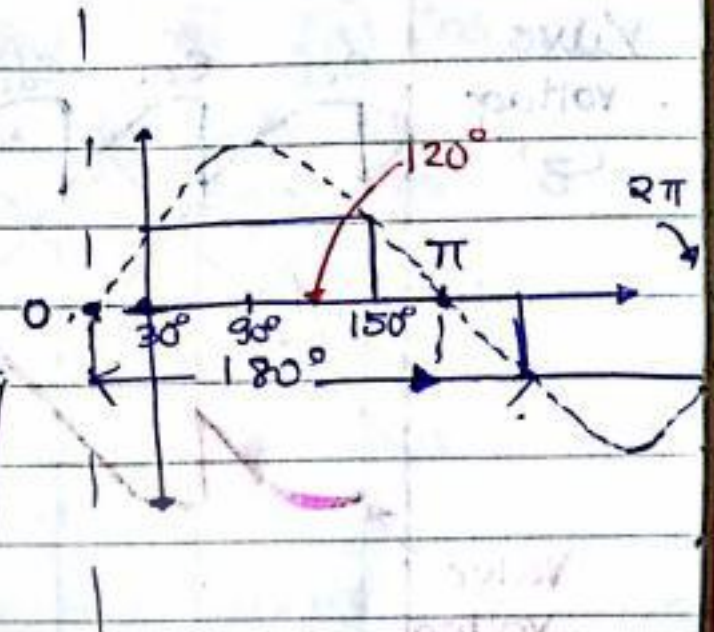 120°
2π
π
0
30° 90° 150°
180°